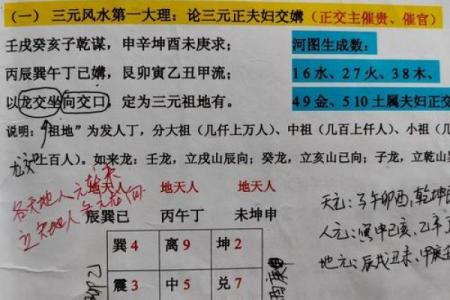 (一) 三元风水第一大理：论三元正夫妇交媾（正交主催贵、催官）
壬戌癸亥子乾谋，申辛坤酉未庚求；
丙辰巽午丁巳媾，艮卯寅乙丑甲流；
以龙交坐向交口，定为三元祖地有。
河图生成数：
1 6 水、2 7 火、3 8 木、
4 9 金、5 10 土属夫妇正交
说明：“祖地”为发人丁，分大祖（几仟上万人）、中祖（几百上仟人）、小祖（几
上百人）。如来龙：壬龙，立戌山辰向；癸龙，立亥山巳向；子龙，立乾山
龙
各
地天人 地天人 地天人
辰巽巳 丙午丁 未坤申
巽 4 离 9 坤 2
震 3 中 5 兑 7
天元：子午卯酉，乾坤
人元：寅申巳亥，乙辛丁
地元：辰戌丑未，甲庚